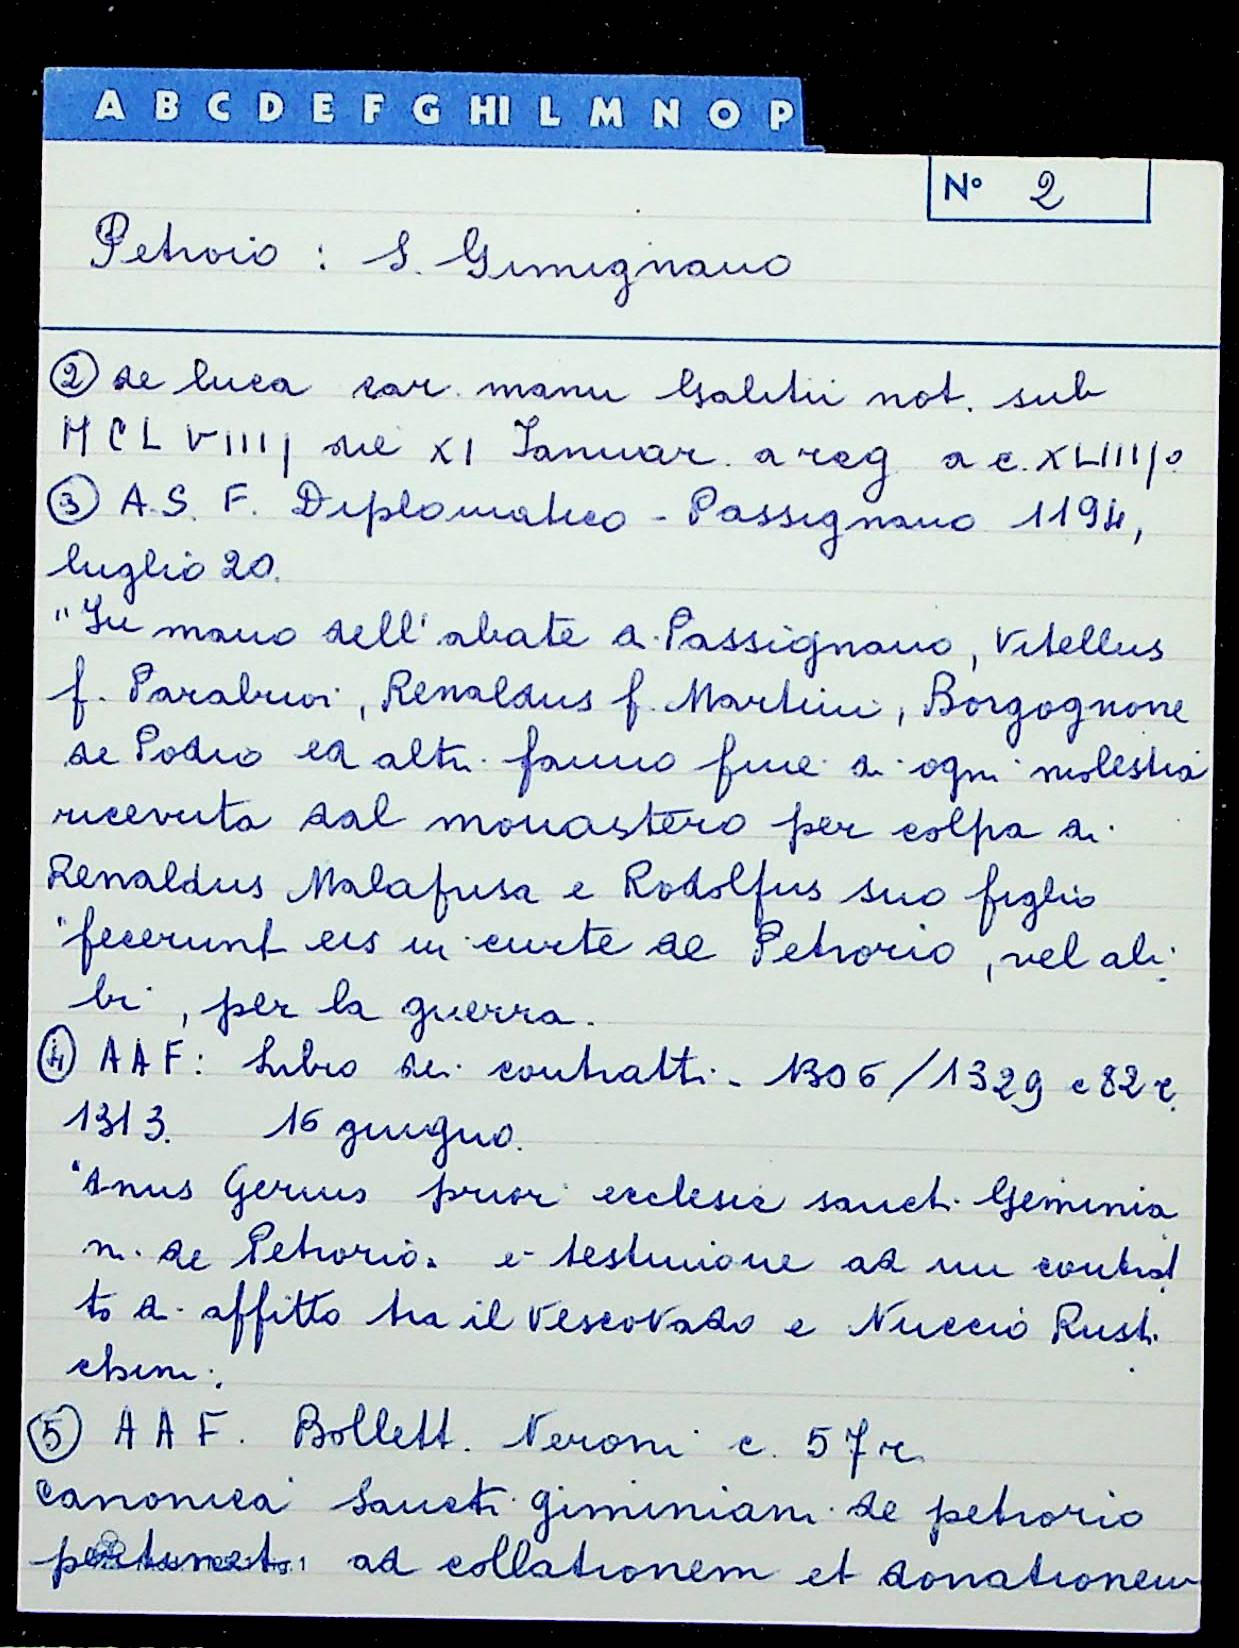 A B C D E F G HI L M N O P
N° 2
Petroio : S. Gimignano
② de luca car. manu Galitii not. sub
MCLVIIII die XI Januar. a reg a c. XLIIII
③ A.S. F. Diplomatico - Passignano 1194,
luglio 20.
"In mano dell'abate di Passignano, Vitellus
f. Parabuoi, Renaldus f. Martini, Borgognone
de Podio ed altri fanno fine di ogni molestia
ricevuta dal monastero per colpa di
Renaldus Malafusa e Rodolfus suo figlio
"fecerunt eis in curte de Petrorio, vel ali-
bi", per la guerra.
④ AAF: Libro dei contratti - 1306/1329 c 82 r.
1313. 16 giugno.
"dnus Gerius prior ecclesie sancti Geminia
ni de Petrorio" e' testimone ad un contrat
to di affitto tra il Vescovado e Nuccio Rusti
chini.
⑤ AAF. Bollett. Neroni c. 57 r.
Canonica Sancti giminiani de petrorio
ad collationem et donationem